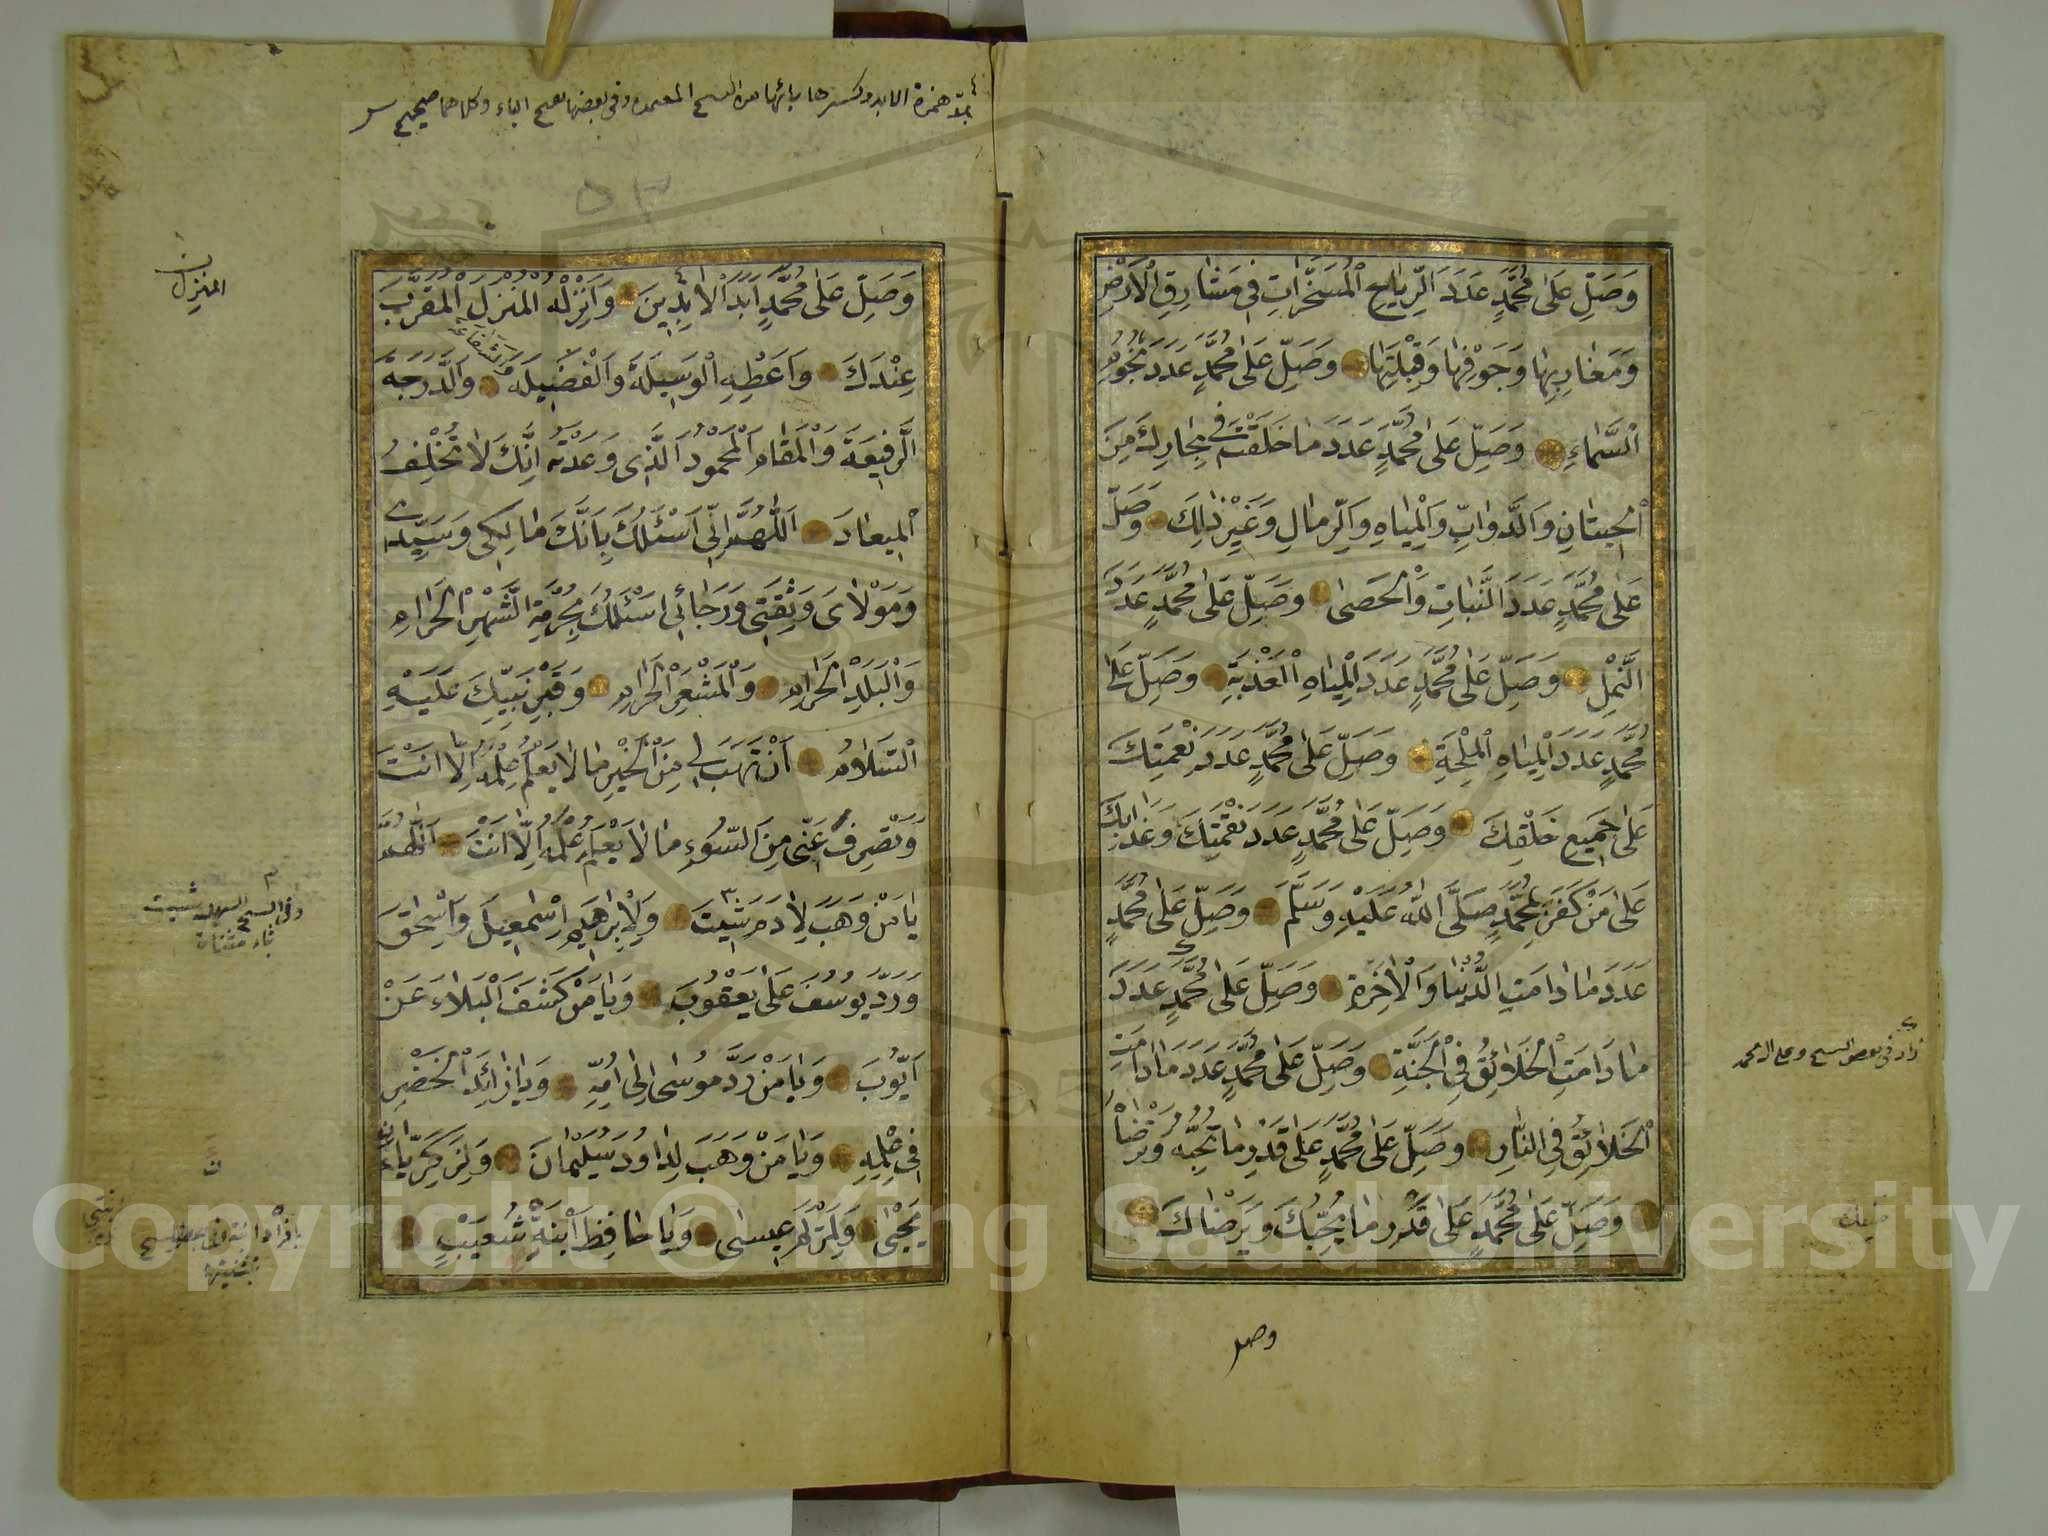 وَصَلِّ عَلٰى مُحَمَّدٍ عَدَدَ الرِّيَاحِ الْمُسَخَّرَاتِ فِي مَشَارِقِ الْاَرْضِ
وَمَغَارِبِهَا وَجَوْفِهَا وَقِبْلَتِهَا وَصَلِّ عَلٰى مُحَمَّدٍ عَدَدَ نُجُومِ
السَّمَاءِ وَصَلِّ عَلٰى مُحَمَّدٍ عَدَدَ مَا خَلَقْتَ فِي بِحَارِكَ مِنَ
الْحِيتَانِ وَالدَّوَابِّ وَالْمِيَاهِ وَالرِّمَالِ وَغَيْرِ ذٰلِكَ وَصَلِّ
عَلٰى مُحَمَّدٍ عَدَدَ النَّبَاتِ وَالْحَصٰى وَصَلِّ عَلٰى مُحَمَّدٍ عَدَدَ
النَّمْلِ وَصَلِّ عَلٰى مُحَمَّدٍ عَدَدَ الْمِيَاهِ الْعَذْبَةِ وَصَلِّ عَلٰى
مُحَمَّدٍ عَدَدَ الْمِيَاهِ الْمِلْحَةِ وَصَلِّ عَلٰى مُحَمَّدٍ عَدَدَ نِعْمَتِكَ
عَلٰى جَمِيعِ خَلْقِكَ وَصَلِّ عَلٰى مُحَمَّدٍ عَدَدَ نِقْمَتِكَ وَعَذَابِكَ
عَلٰى مَنْ كَفَرَ بِمُحَمَّدٍ صَلَّى اللّٰهُ عَلَيْهِ وَسَلَّمَ وَصَلِّ عَلٰى مُحَمَّدٍ
عَدَدَ مَا دَامَتِ الدُّنْيَا وَالْاٰخِرَةِ وَصَلِّ عَلٰى مُحَمَّدٍ عَدَدَ
مَا دَامَتِ الْخَلَائِقُ فِي الْجَنَّةِ وَصَلِّ عَلٰى مُحَمَّدٍ عَدَدَ مَا دَامَتِ
الْخَلَائِقُ فِي النَّارِ وَصَلِّ عَلٰى مُحَمَّدٍ عَلٰى قَدْرِ مَا تُحِبُّهُ وَتَرْضَاهُ
وَصَلِّ عَلٰى مُحَمَّدٍ عَلٰى قَدْرِ مَا يُحِبُّكَ وَيَرْضَاكَ
زاد في بعض النسخ وعلى ال محمد
وصل
وَصَلِّ عَلٰى مُحَمَّدٍ اَبَدَ الْاٰبِدِينَ وَاَنْزِلْهُ الْمُنْزَلَ الْمُقَرَّبَ
عِنْدَكَ وَاَعْطِهِ الْوَسِيلَةَ وَالْفَضِيلَةَ وَالشَّفَاعَةَ وَالدَّرَجَةَ
الرَّفِيعَةَ وَالْمَقَامَ الْمَحْمُودَ الَّذِي وَعَدْتَهُ اِنَّكَ لَا تُخْلِفُ
الْمِيعَادَ اَللّٰهُمَّ اِنِّي اَسْئَلُكَ بِاَنَّكَ مَالِكِي وَسَيِّدِي
وَمَوْلَايَ وَثِقَتِي وَرَجَائِي اَسْئَلُكَ بِحُرْمَةِ الشَّهْرِ الْحَرَامِ
وَالْبَلَدِ الْحَرَامِ وَالْمَشْعَرِ الْحَرَامِ وَقَبْرِ نَبِيِّكَ عَلَيْهِ
السَّلَامُ اَنْ تَهَبَ لِي مِنَ الْخَيْرِ مَا لَا يَعْلَمُ عِلْمَهُ اِلَّا اَنْتَ
وَتَصْرِفَ عَنِّي مِنَ السُّوءِ مَا لَا يَعْلَمُ عِلْمَهُ اِلَّا اَنْتَ اَللّٰهُمَّ
يَا مَنْ وَهَبَ لِاٰدَمَ شِيثَ وَلِاِبْرَاهِيمَ اِسْمٰعِيلَ وَاِسْحٰقَ
وَرَدَّ يُوسُفَ عَلٰى يَعْقُوبَ وَيَا مَنْ كَشَفَ الْبَلَاءَ عَنْ
اَيُّوبَ وَيَا مَنْ رَدَّ مُوسٰى اِلٰى اُمِّهِ وَيَا زَائِدَ الْخَضِرِ
فِي عِلْمِهِ وَيَا مَنْ وَهَبَ لِدَاوُدَ سُلَيْمَانَ وَلِزَكَرِيَّاءَ
يَحْيٰى وَلِمَرْيَمَ عِيسٰى وَيَا حَافِظَ ابْنَةِ شُعَيْبٍ
بمد همزة الابد وكسر بائها من النسخ المعتمدة وفي بعضها بفتح الباء وكلاهما صحيح
٥٣
المنزل
وفي النسخة السهلية شيت
بتاء مثناة
Copyright © King Saud University